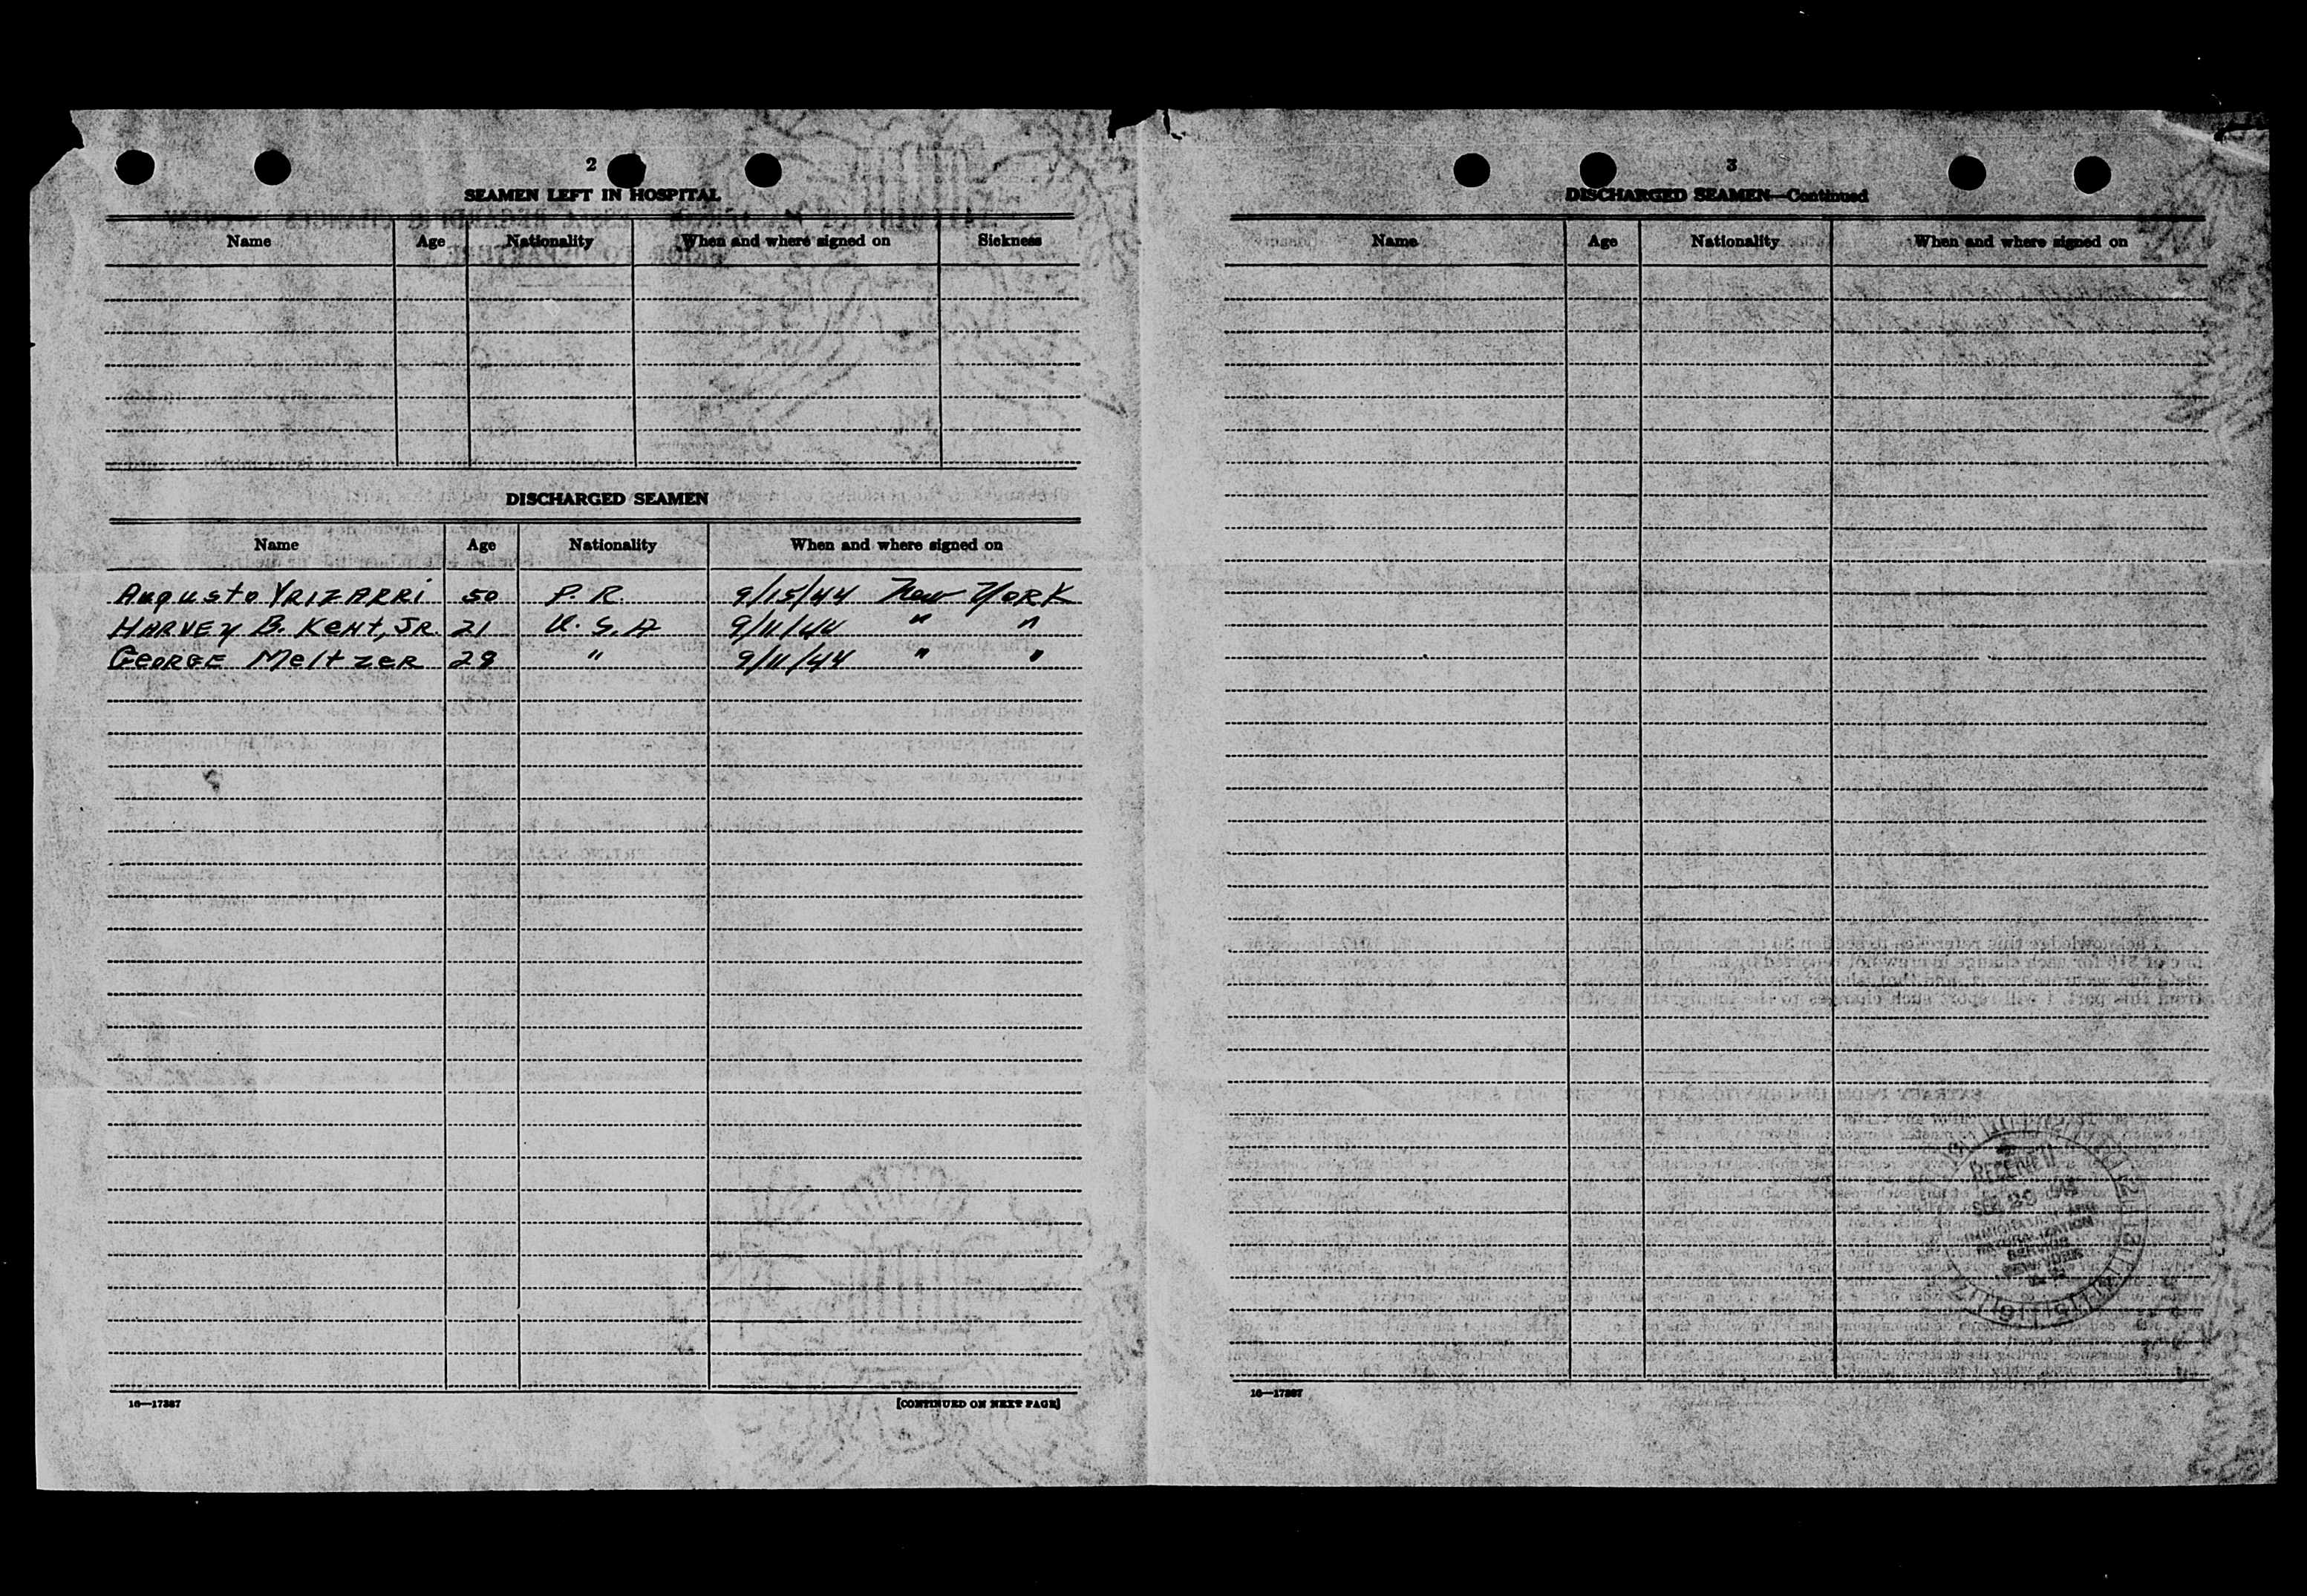 2
SEAMEN LEFT IN HOSPITAL
Name Age Nationality When and where signed on Sickness
DISCHARGED SEAMEN
Name Age Nationality When and where signed on
Augusto YRIZARRI 50 P. R. 9/15/44 New YORK
HARVEY B. KeNt, JR. 21 U. S. A 9/11/44 " "
GeoRGE MeltzeR 28 " 9/11/44 " "
16—17387
[CONTINUED ON NEXT PAGE]
3
DISCHARGED SEAMEN—Continued
Name Age Nationality When and where signed on
RECEIVED
IMMIGRATION AND
NATURALIZATION
SERVICE
NEW YORK
16—17387